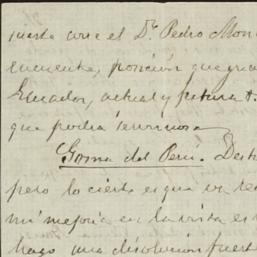 puesta con el Dr Pedro Mon
encuentra, posición que gua
Ecuador, actual y futura
que podia
Goma del Peru. Des
pero lo cierto es que en
mi mejoría en la vista es
hago una disolución fuert